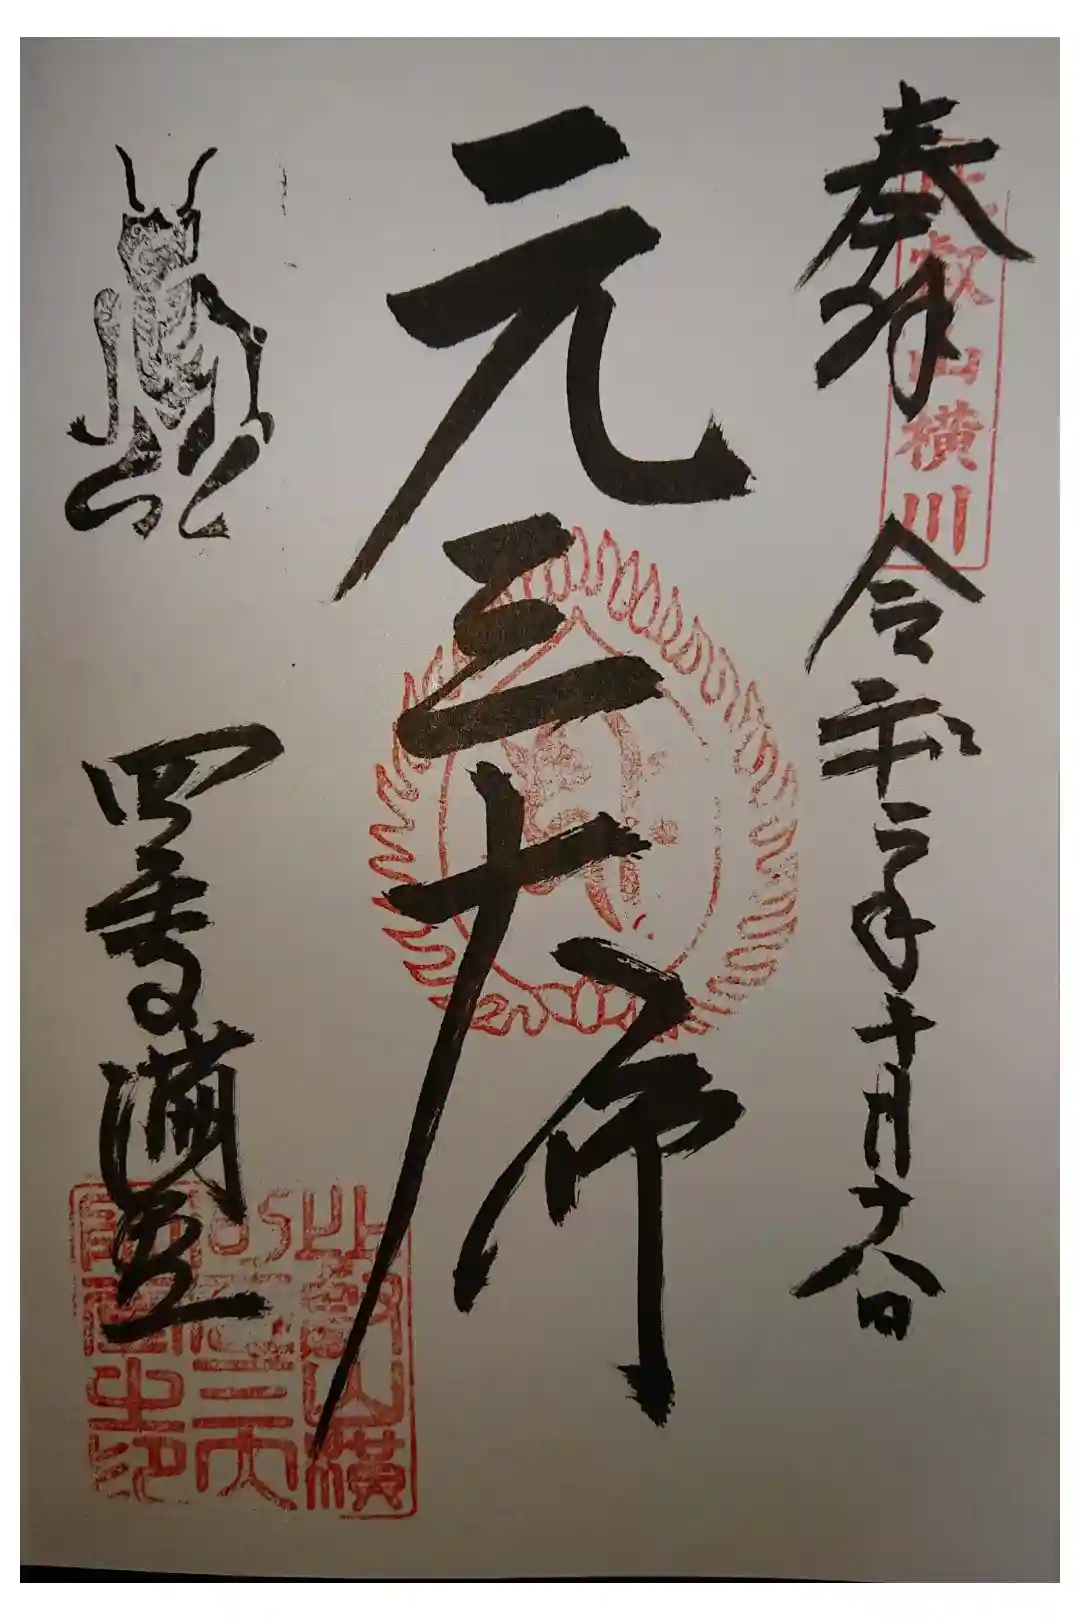 奉拝
比叡山横川
令和二年十月十八日
元三大師
四季講堂
比叡山横
川元三大
師堂之印